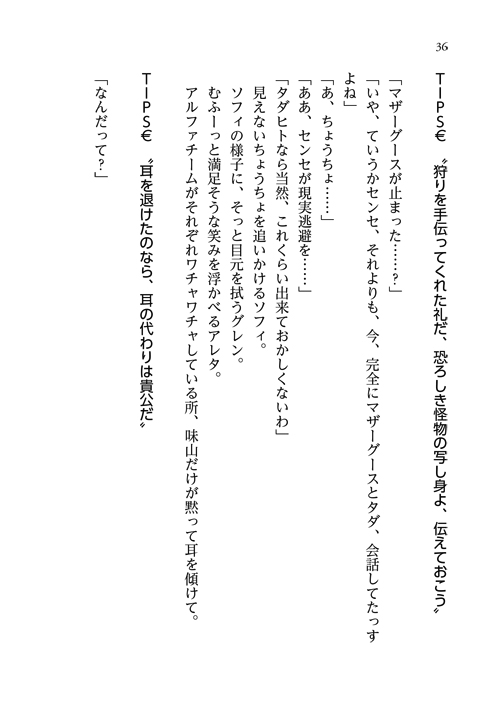 36
TIPS€　〝狩りを手伝ってくれた礼だ、恐ろしき怪物の写し身よ、伝えておこう〟
「マザーグースが止まった……？」
「いや、ていうかセンセ、それよりも、今、完全にマザーグースとタダ、会話してたっす
よね」
「あ、ちょうちょ……」
「ああ、センセが現実逃避を……」
「タダヒトなら当然、これくらい出来ておかしくないわ」
見えないちょうちょを追いかけるソフィ。
ソフィの様子に、そっと目元を拭うグレン。
むふーっと満足そうな笑みを浮かべるアレタ。
アルファチームがそれぞれワチャワチャしている所、味山だけが黙って耳を傾けて。
TIPS€　〝耳を退けたのなら、耳の代わりは貴公だ〟
「なんだって？」